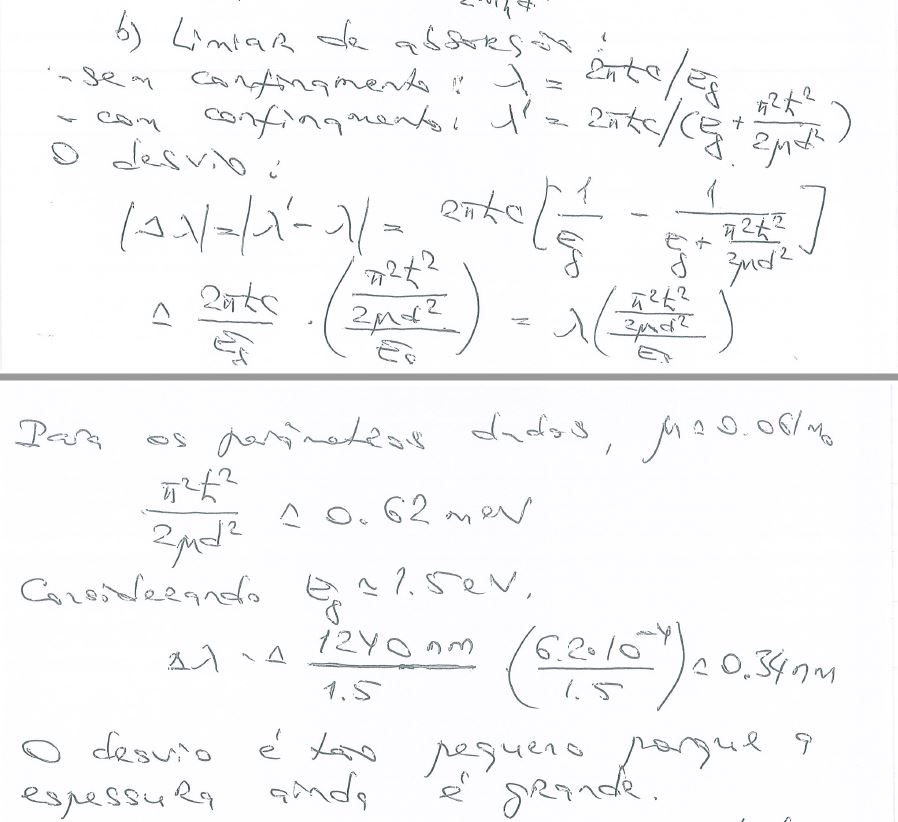 b) Limiar de absorção:
- sem confinamento: λ = 2πħc/Eg
- com confinamento: λ' = 2πħc/(Eg + π²ħ²/2μd²)
O desvio:
|Δλ| = |λ' - λ| = 2πħc [1/Eg - 1/(Eg + π²ħ²/2μd²)]
≃ 2πħc/Eg · ((π²ħ²/2μd²)/Eg) = λ((π²ħ²/2μd²)/Eg)
Para os parâmetros dados, μ ≃ 0.061m₀
π²ħ²/2μd² ≃ 0.62 meV
Considerando Eg ≃ 1.5 eV,
Δλ ≃ 1240 nm/1.5 (6.2·10⁻⁴/1.5) ≃ 0.34 nm
O desvio é tão pequeno porque a
espessura ainda é grande.